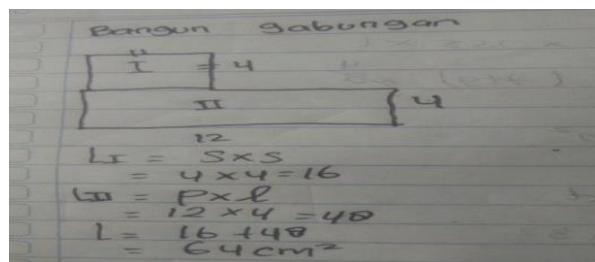 Bangun gabungan
4
I = 4
II 4
12
LI = S×S
= 4×4=16
LII = P×l
= 12×4 =48
L = 16+48
= 64cm²